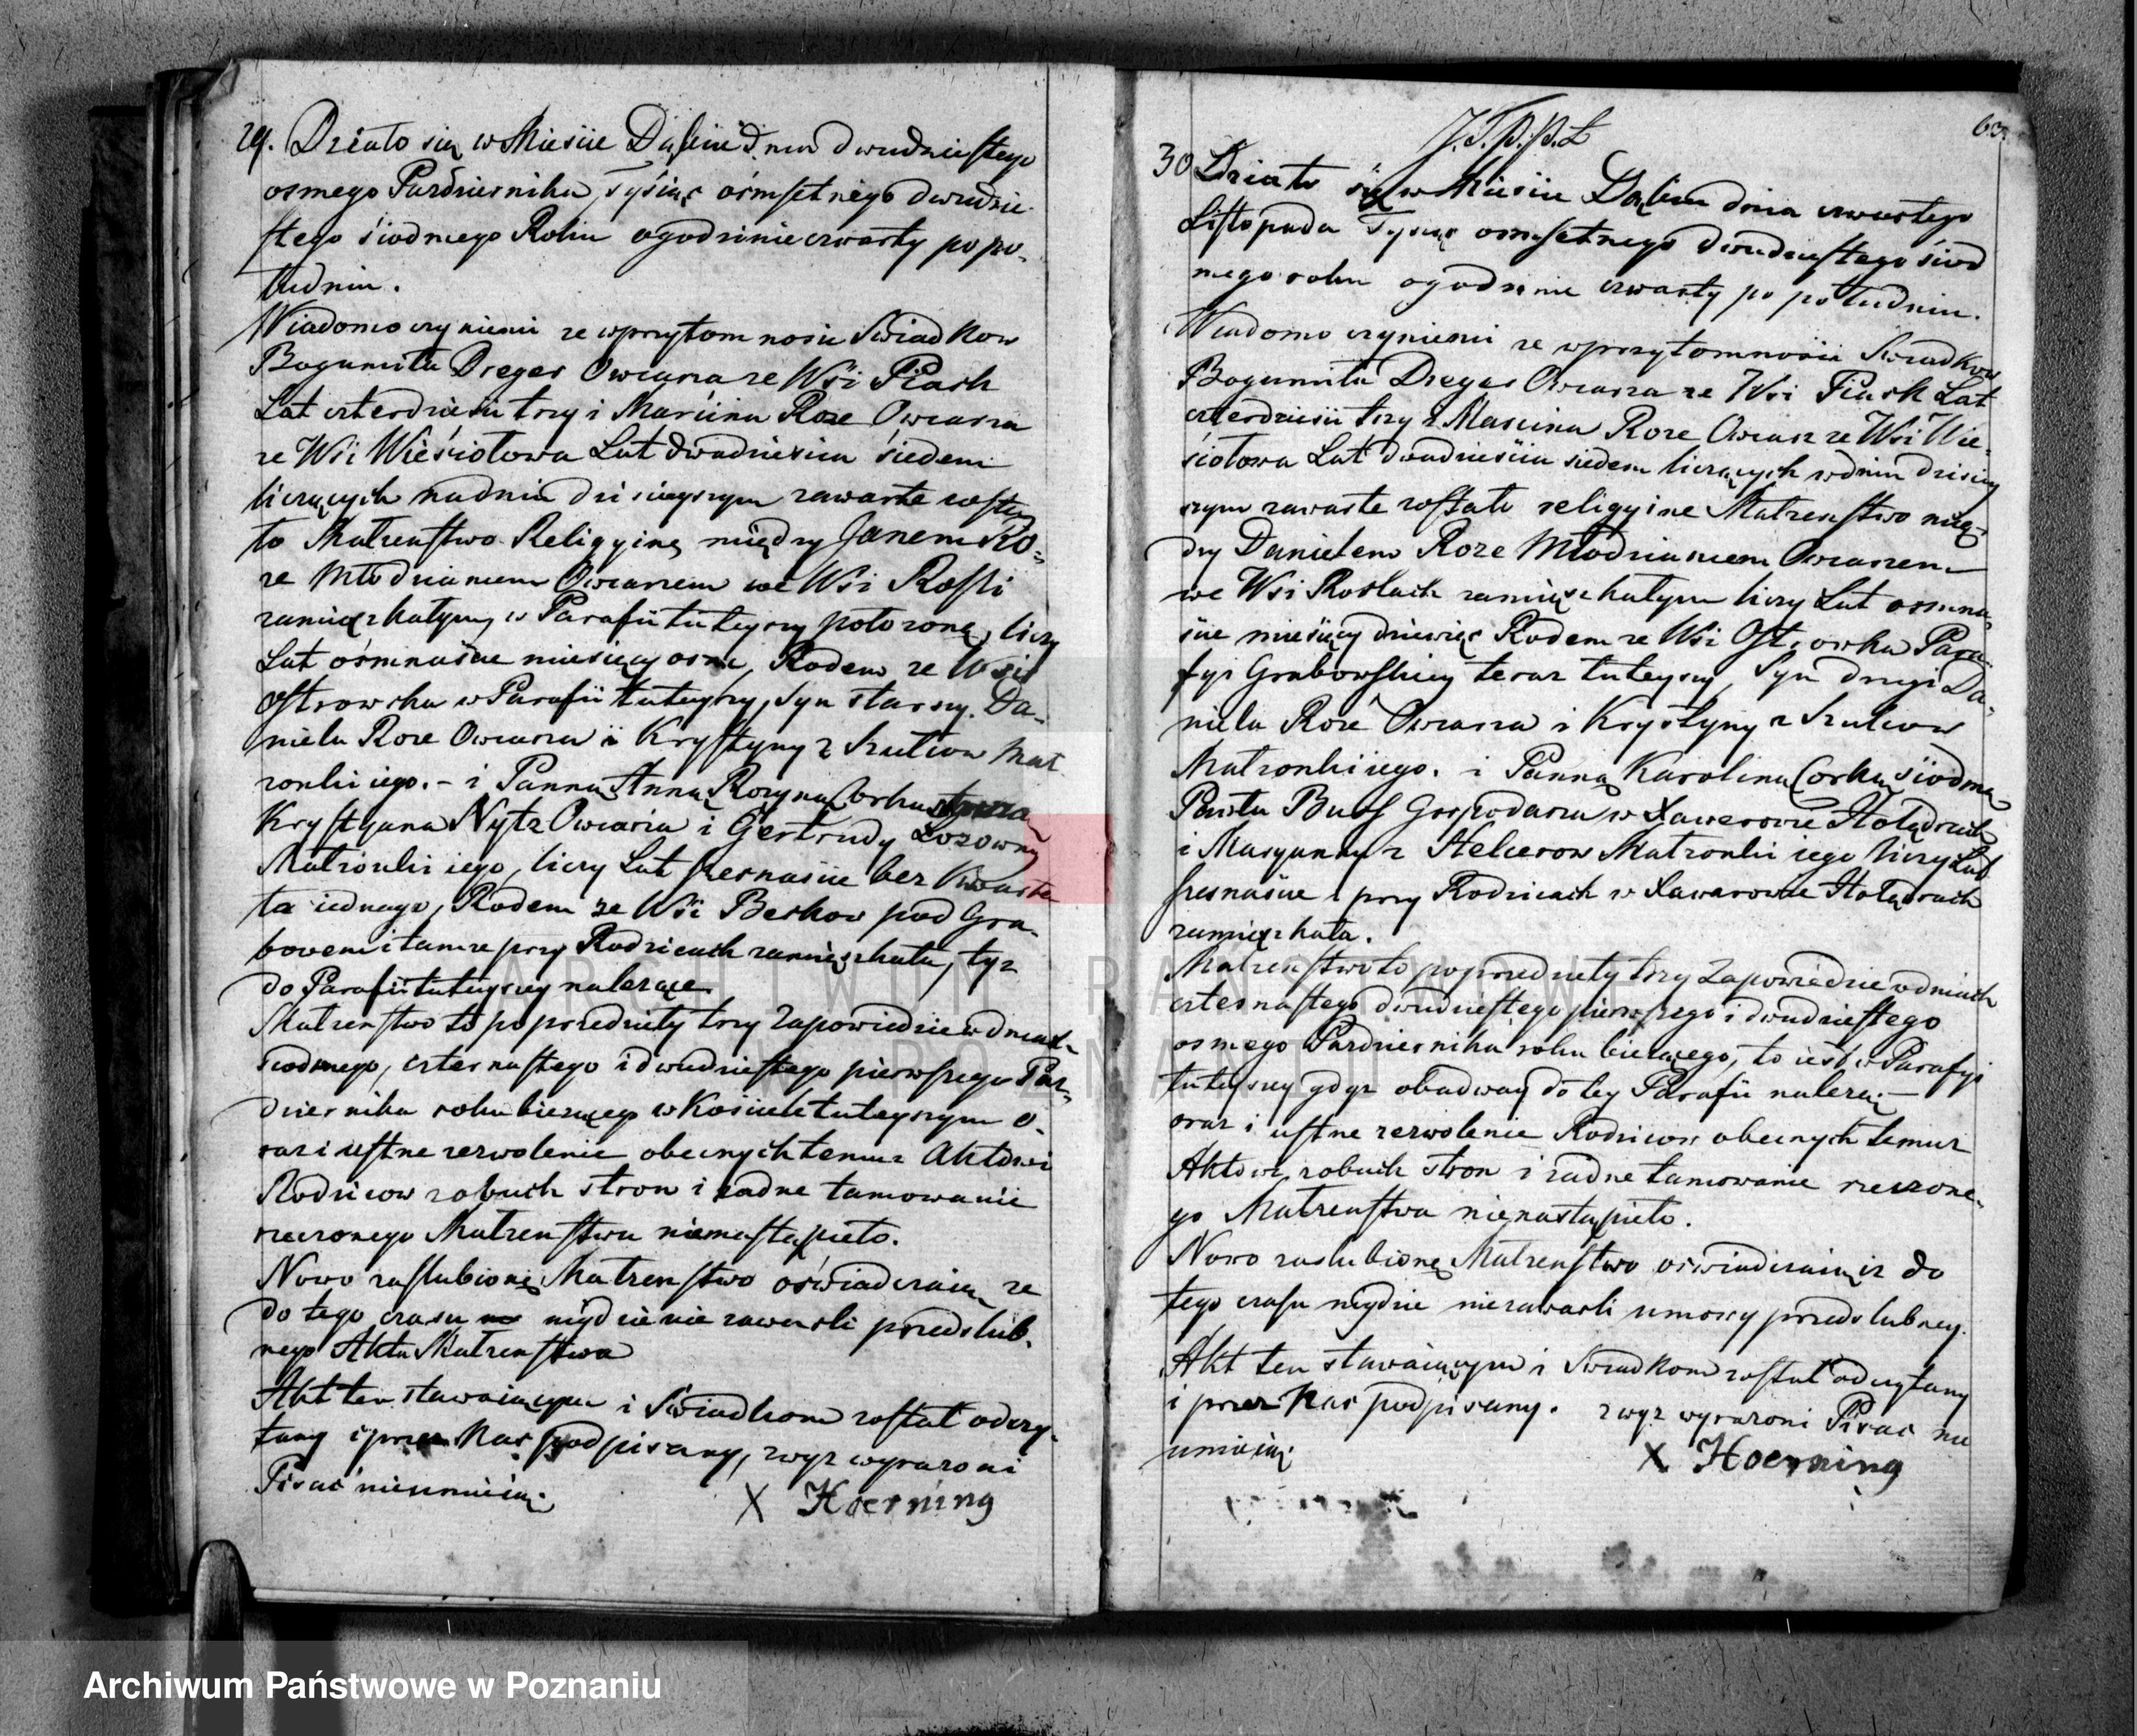 29. Działo się w Mieście Dąbiu Dnia dwudziestego
osmego Pazdziernika, Tysiąc osmsetnego dwudzie-
stego siodmego Roku o godzinie czwarty po po-
ludniu.
Wiadomo czyniemi ze w przytomnosci Swiadkow
Bogumiła Dreger Owczarza ze Wsi Piask
Lat czterdziesci trzy i Marcina Roze Owczarza
ze Wsi Wiesiołowa Lat dwadziescia siedem
liczących na dniu dzisieyszym zawarte zosta-
to Małzenstwo Religyine między Janem Ro-
ze Młodzianem Owczarzem we Wsi Rosli
zamięszkałym, w Parafii tuteyszy położoną, liczy
Lat osmnascie miesięcy osm, Rodem ze Wsi
Ostrowska w Parafii tuteyszy, Syn starszy Da-
niela Roze Owczarza i Krystyny z Szulcow Mał
zonki iego. - i Panną Anną Rozyną Corką
Krystyana Nytz Owczarza i Gertrudy Lozowny
Małzonki iego, liczy Lat szesnascie bez Kwarta
ta iednego, Rodem ze Wsi Beskow pod Gra-
bovem i tamze przy Rodzicach zamięszkała, tyz
do Parafii tuteyszey nalezące.
Malzenstwo to poprzedzieły trzy Zapowiedzie w dniach
siodmego, czternastego i dwudziestego pierwszego Paz-
dziernika roku biezącego w Kosciele tuteyszym o-
raz i ustne zezwolenie obecnych temuz Aktowi
Rodzicow z obuch stron i zadne tamowanie
rzeczonego Małzenstwa nienastąpieło.
Nowo zaslubione Małzenstwo oswiadczaią ze
do tego czasu nigdzie nie zawarli przedslub-
nego Aktu Małzenstwa
Akt ten stawaiącym i Swiadkom zostal odczy-
tany i przez Nas podpisany, zwyz wyrazoni
Pisac nieumieią.
X Hoerning
63.
J. T. p. p. L
30 Działo się w Mieście Dąbiu dnia czwartego
Listopada Tysiąc osmsetnego dwudziestego siod
mego roku o godzinie czwarty po południu.
Wiadomo czyniemi ze w przytomnosci Swiadkow
Bogumiła Dreger Owczarza ze Wsi Piask Lat
czterdziesci trzy i Marcina Roze Owczarz ze Wsi Wie-
siołowa Lat dwadziescia siedem liczących w dniu dzisiey
szym zawarte zostało religyine Małzenstwo mię-
dzy Danielem Roze Młodzianem Owczarzem
we Wsi Roslach zamięszkałym liczy Lat osmna-
scie miesięcy dziewięc Rodem ze Wsi Ostrowka Para-
fyi Grabowskiey teraz tuteyszy, Syn drugi Da-
niela Roze Owczarza i Krystyny z Szulcow
Małzonki iego. i Panną Karoliną Corką siodmą
Pawła Buss Gospodarza w Xawerowie Holędrach
i Maryanny z Helcerow Małzonki iego liczy Lat
szesnascie i przy Rodzicach w Xawerowie Holędrach
zamięszkała.
Malzenstwo to poprzedzieły trzy Zapowiedzie w dniach
czternastego dwudziestego pierwszego i dwudziestego
osmego Pazdziernika roku biezącego, to iest w Parafyi
tuteyszey gdyz obadway do tey Parafii nalezą. -
oraz i ustne zezwolenie Rodzicow obecnych temuz
Aktowi z obuch stron i zadne tamowanie rzeczone-
go Małzenstwa nienastąpieło.
Nowo zaslubione Małzenstwo oswiadczaią iz do
tego czasu nigdzie niezawarli umowy przedslubney.
Akt ten stawaiącym i Swiadkom zostal odczytany
i przez Nas podpisany. zwyz wyrazoni Pisac nie
umieią.
X Hoerning
ARCHIWUM PAŃSTWOWE
W POZNANIU
Archiwum Państwowe w Poznaniu